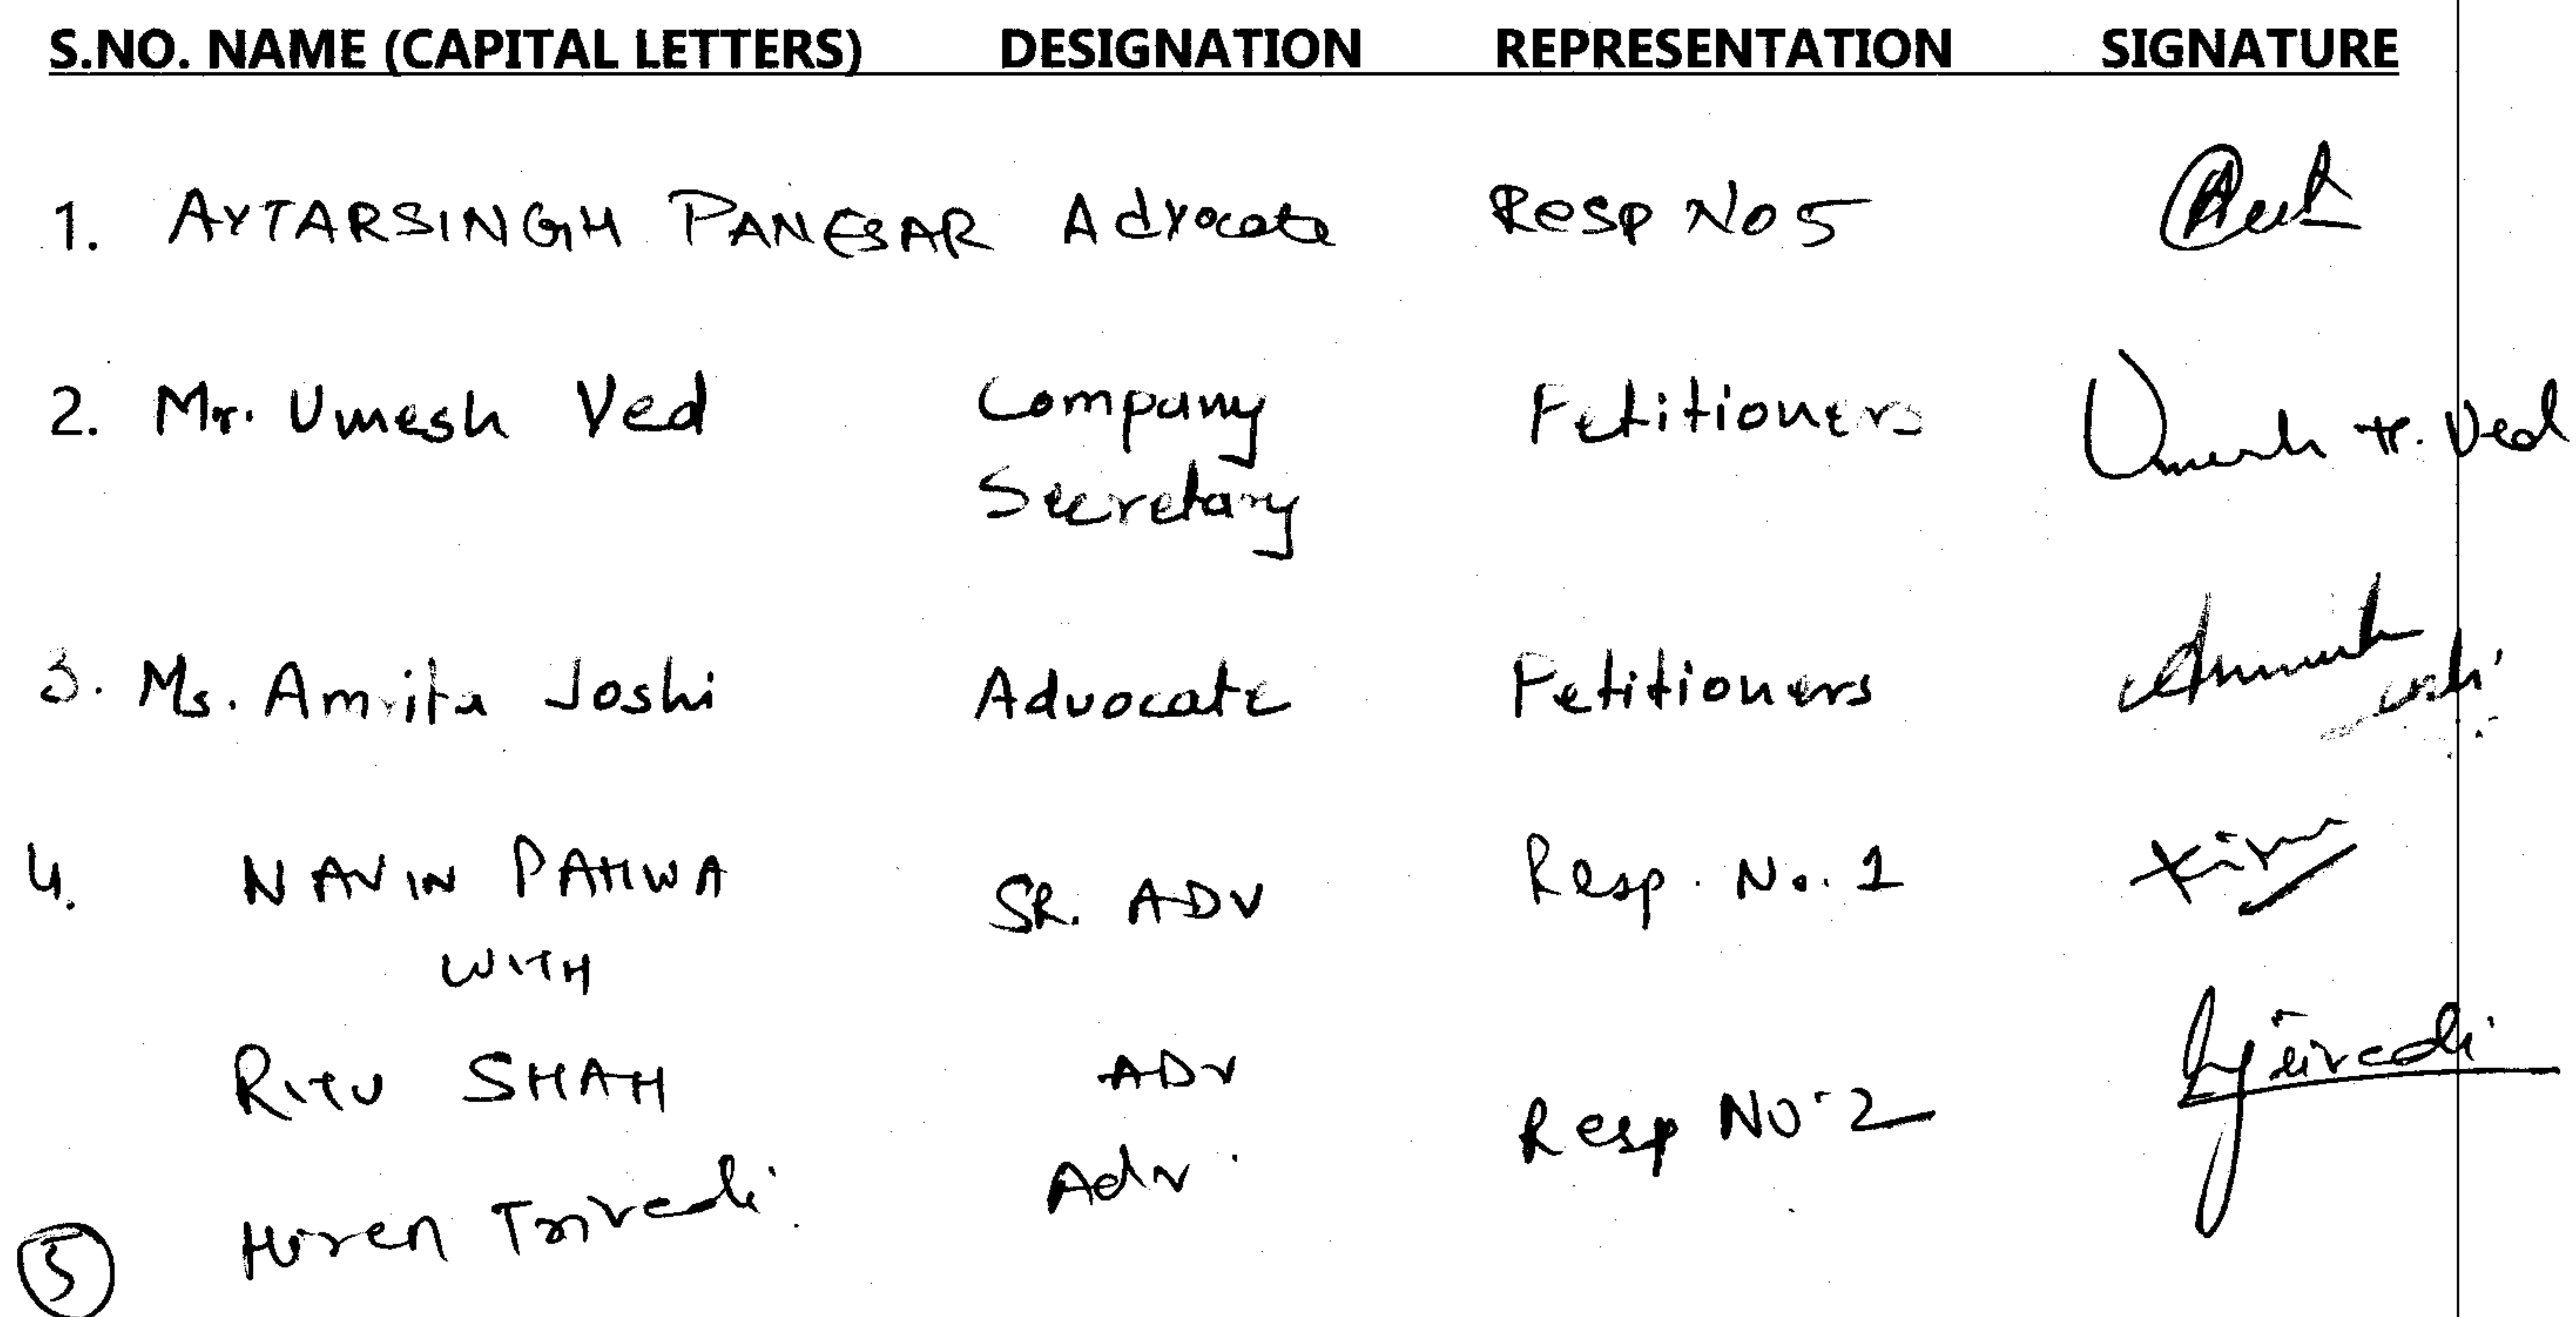 S.NO. NAME (CAPITAL LETTERS) DESIGNATION REPRESENTATION SIGNATURE
1. AVTARSINGH PANESAR Advocate Resp No 5
2. Mr. Umesh Ved Company Petitioners Umesh H. Ved
Secretary
3. Ms. Amrita Joshi Advocate Petitioners
4. NAVIN PAHWA SR. ADV Resp. No. 1
WITH
RITU SHAH ADV
5 Hiren Trivedi Adv. Resp No. 2